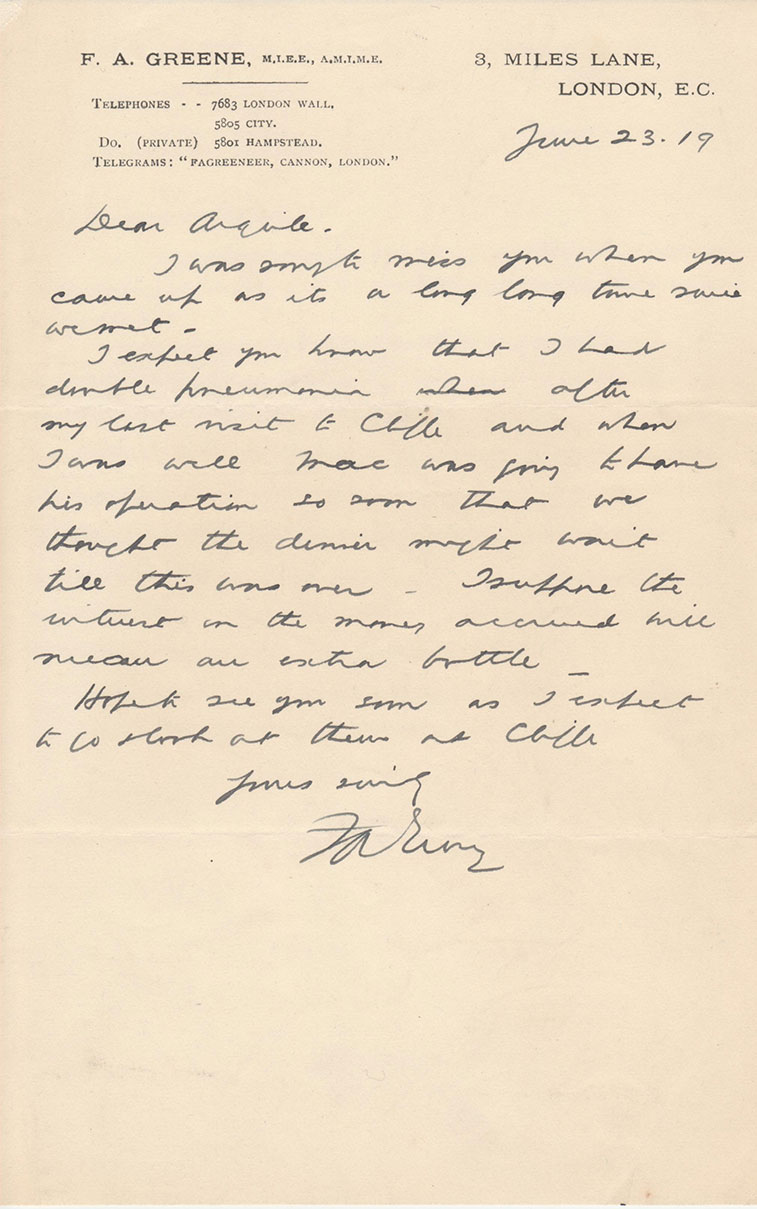 F. A. GREENE, M.I.E.E., A.M.I.M.E.
3, MILES LANE,
LONDON, E.C.
TELEPHONES - - 7683 LONDON WALL.
5805 CITY.
DO. (PRIVATE) 5801 HAMPSTEAD.
TELEGRAMS: "FAGREENEER, CANNON, LONDON."
June 23. 19
Dear Arguile.
I was sorry to miss you when you
came up as its a long long time since
we met -
I expect you know that I had
double pneumonia when after
my last visit to Cliffe and when
I was well Mac was going to have
his operation so soon that we
thought the dinner might wait
till this was over - I suppose the
interest on the money accrued will
mean an extra bottle -
Hope to see you soon as I expect
to go & look at them at Cliffe
Yours sincly
FAGreene